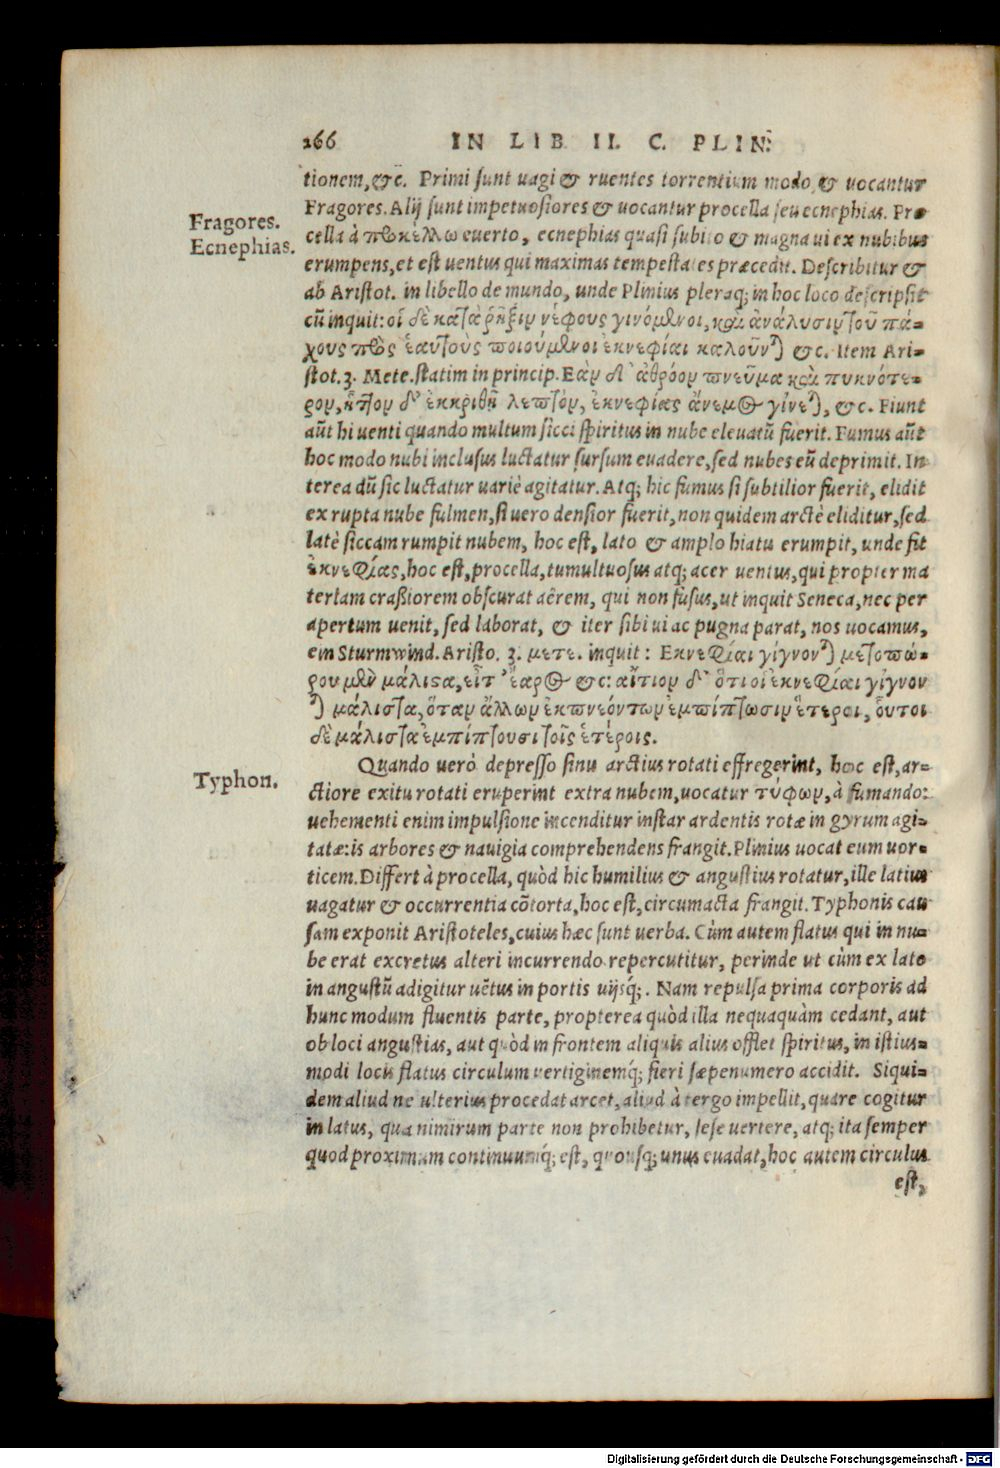 266 IN LIB II. C. PLIN:
tionem, &c. Primi ſunt uagi & ruentes torrentium modo, & uocantur
Fragores.
Fragores. Alij ſunt impetuoſiores & uocantur procella ſeu ecnephias. Pro
Ecnephias.
cella à προκέλλω euerto, ecnephias quaſi ſubito & magna ui ex nubibus
erumpens, et eſt uentus qui maximas tempeſtates præcedit. Deſcribitur &
ab Ariſtot. in libello de mundo, unde Plinius pleraq; in hoc loco deſcripſit
cũ inquit: οἱ δὲ κατὰ ῥῆξιν νέφους γινόμενοι, καὶ ἀνάλυσιν τοῦ πά-
χους πρὸς ἑαυτοὺς ποιούμενοι ἐκνεφίαι καλοῦνται &c. Item Ari-
ſtot. 3. Mete. ſtatim in princip. Εὰν δ' ἀθρόον πνεῦμα καὶ πυκνότε-
ρον, ἧττον δ' ἐκκριθῇ λεπτὸν, ἐκνεφίας ἄνεμος γίνεται, &c. Fiunt
aũt hi uenti quando multum ſicci ſpiritus in nube eleuatũ fuerit. Fumus aũt
hoc modo nubi incluſus luctatur ſurſum euadere, ſed nubes eũ deprimit. In
terea dũ ſic luctatur uariè agitatur. Atq; hic fumus ſi ſubtilior fuerit, elidit
ex rupta nube fulmen, ſi uero denſior fuerit, non quidem arctè eliditur, ſed
latè ſiccam rumpit nubem, hoc eſt, lato & amplo hiatu erumpit, unde fit
ἐκνεφίας, hoc eſt, procella, tumultuoſus atq; acer uentus, qui propter ma
teriam craſsiorem obſcurat aërem, qui non fuſus, ut inquit Seneca, nec per
apertum uenit, ſed laborat, & iter ſibi ui ac pugna parat, nos uocamus,
ein Sturmwind. Ariſto. 3. μετε. inquit: Εκνεφίαι γίγνονται μετοπώ-
ρου μὲν μάλιστα, εἶτ' ἔαρος &c: αἴτιον δ' ὅτι οἱ ἐκνεφίαι γίγνον
ται μάλιστα, ὅταν ἄλλων ἐκπνεόντων ἐμπίπτωσιν ἕτεροι, οὗτοι
δὲ μάλιστα ἐμπίπτουσι τοῖς ἑτέροις.
Quando uerò depreſſo ſinu arctius rotati effregerint, hoc eſt, ar-
Typhon.
ctiore exitu rotati eruperint extra nubem, uocatur τύφων, à fumando:
uehementi enim impulſione incenditur inſtar ardentis rotæ in gyrum agi-
tatæ: is arbores & nauigia comprehendens frangit. Plinius uocat eum uor-
ticem. Differt à procella, quòd hic humilius & anguſtius rotatur, ille latius
uagatur & occurrentia cõtorta, hoc eſt, circumacta frangit. Typhonis cau
ſam exponit Ariſtoteles, cuius hæc ſunt uerba. Cùm autem flatus qui in nu-
be erat excretus alteri incurrendo repercutitur, perinde ut cùm ex lato
in anguſtũ adigitur uẽtus in portis uijsq́;. Nam repulſa prima corporis ad
hunc modum fluentis parte, propterea quòd illa nequaquàm cedant, aut
ob loci anguſtias, aut quòd in frontem aliquis alius offlet ſpiritus, in iſtius-
modi locis flatus circulum uertiginemq́; fieri ſæpenumero accidit. Siqui-
dem aliud ne ulterius procedat arcet, aliud à tergo impellit, quare cogitur
in latus, qua nimirum parte non prohibetur, ſeſe uertere, atq; ita ſemper
quod proximum continuumq́; eſt, quouſq; unus euadat, hoc autem circulus
eſt,
Digitalisierung gefördert durch die Deutsche Forschungsgemeinschaft - DFG